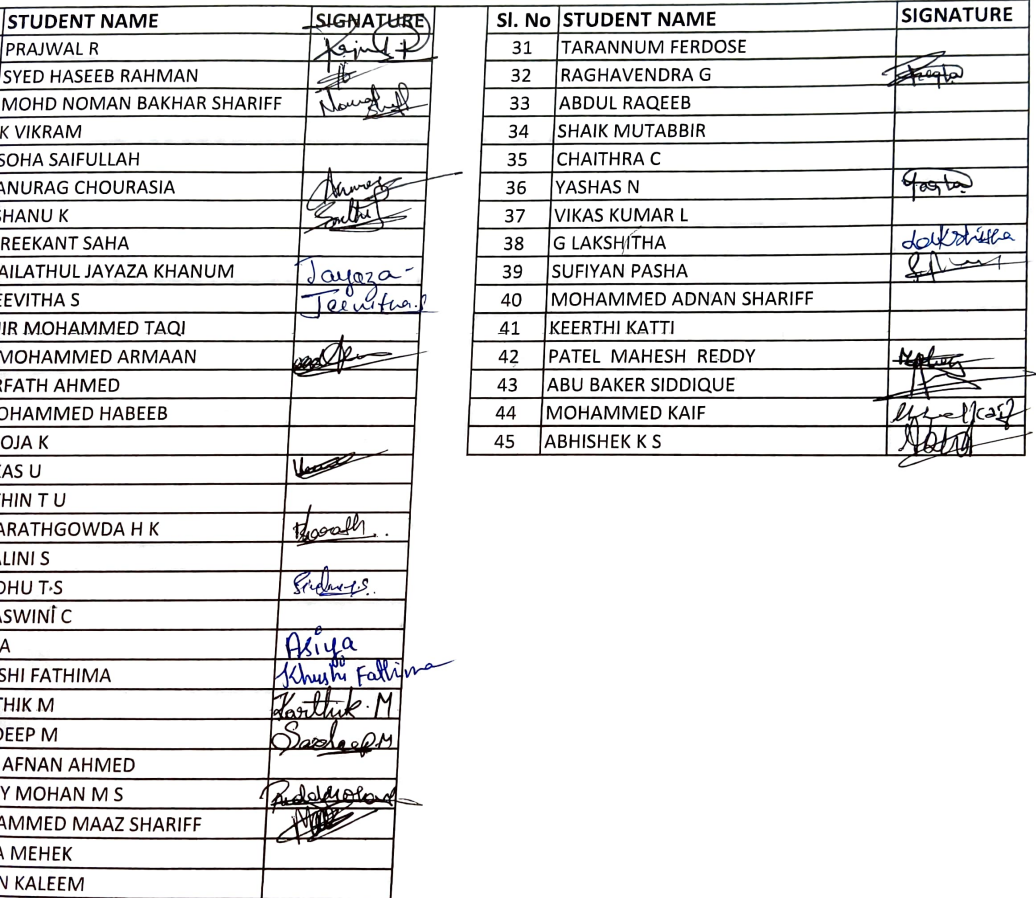 STUDENT NAME SIGNATURE
PRAJWAL R
SYED HASEEB RAHMAN
MOHD NOMAN BAKHAR SHARIFF
K VIKRAM
SOHA SAIFULLAH
ANURAG CHOURASIA
SHANU K
REEKANT SAHA
AILATHUL JAYAZA KHANUM Jayaza-
EEVITHA S Jeevitha.S
IR MOHAMMED TAQI
MOHAMMED ARMAAN
RFATH AHMED
OHAMMED HABEEB
OJA K
KAS U
THIN T U
ARATHGOWDA H K Bharath..
LINI S
DHU T.S
ASWINI C
A Asiya
SHI FATHIMA Khushi Fathima
THIK M Karthik.M
DEEP M Sandeep M
AFNAN AHMED
Y MOHAN M S
AMMED MAAZ SHARIFF
A MEHEK
N KALEEM
Sl. No STUDENT NAME SIGNATURE
31 TARANNUM FERDOSE
32 RAGHAVENDRA G
33 ABDUL RAQEEB
34 SHAIK MUTABBIR
35 CHAITHRA C
36 YASHAS N
37 VIKAS KUMAR L
38 G LAKSHITHA Lakshitha
39 SUFIYAN PASHA
40 MOHAMMED ADNAN SHARIFF
41 KEERTHI KATTI
42 PATEL MAHESH REDDY
43 ABU BAKER SIDDIQUE
44 MOHAMMED KAIF
45 ABHISHEK K S